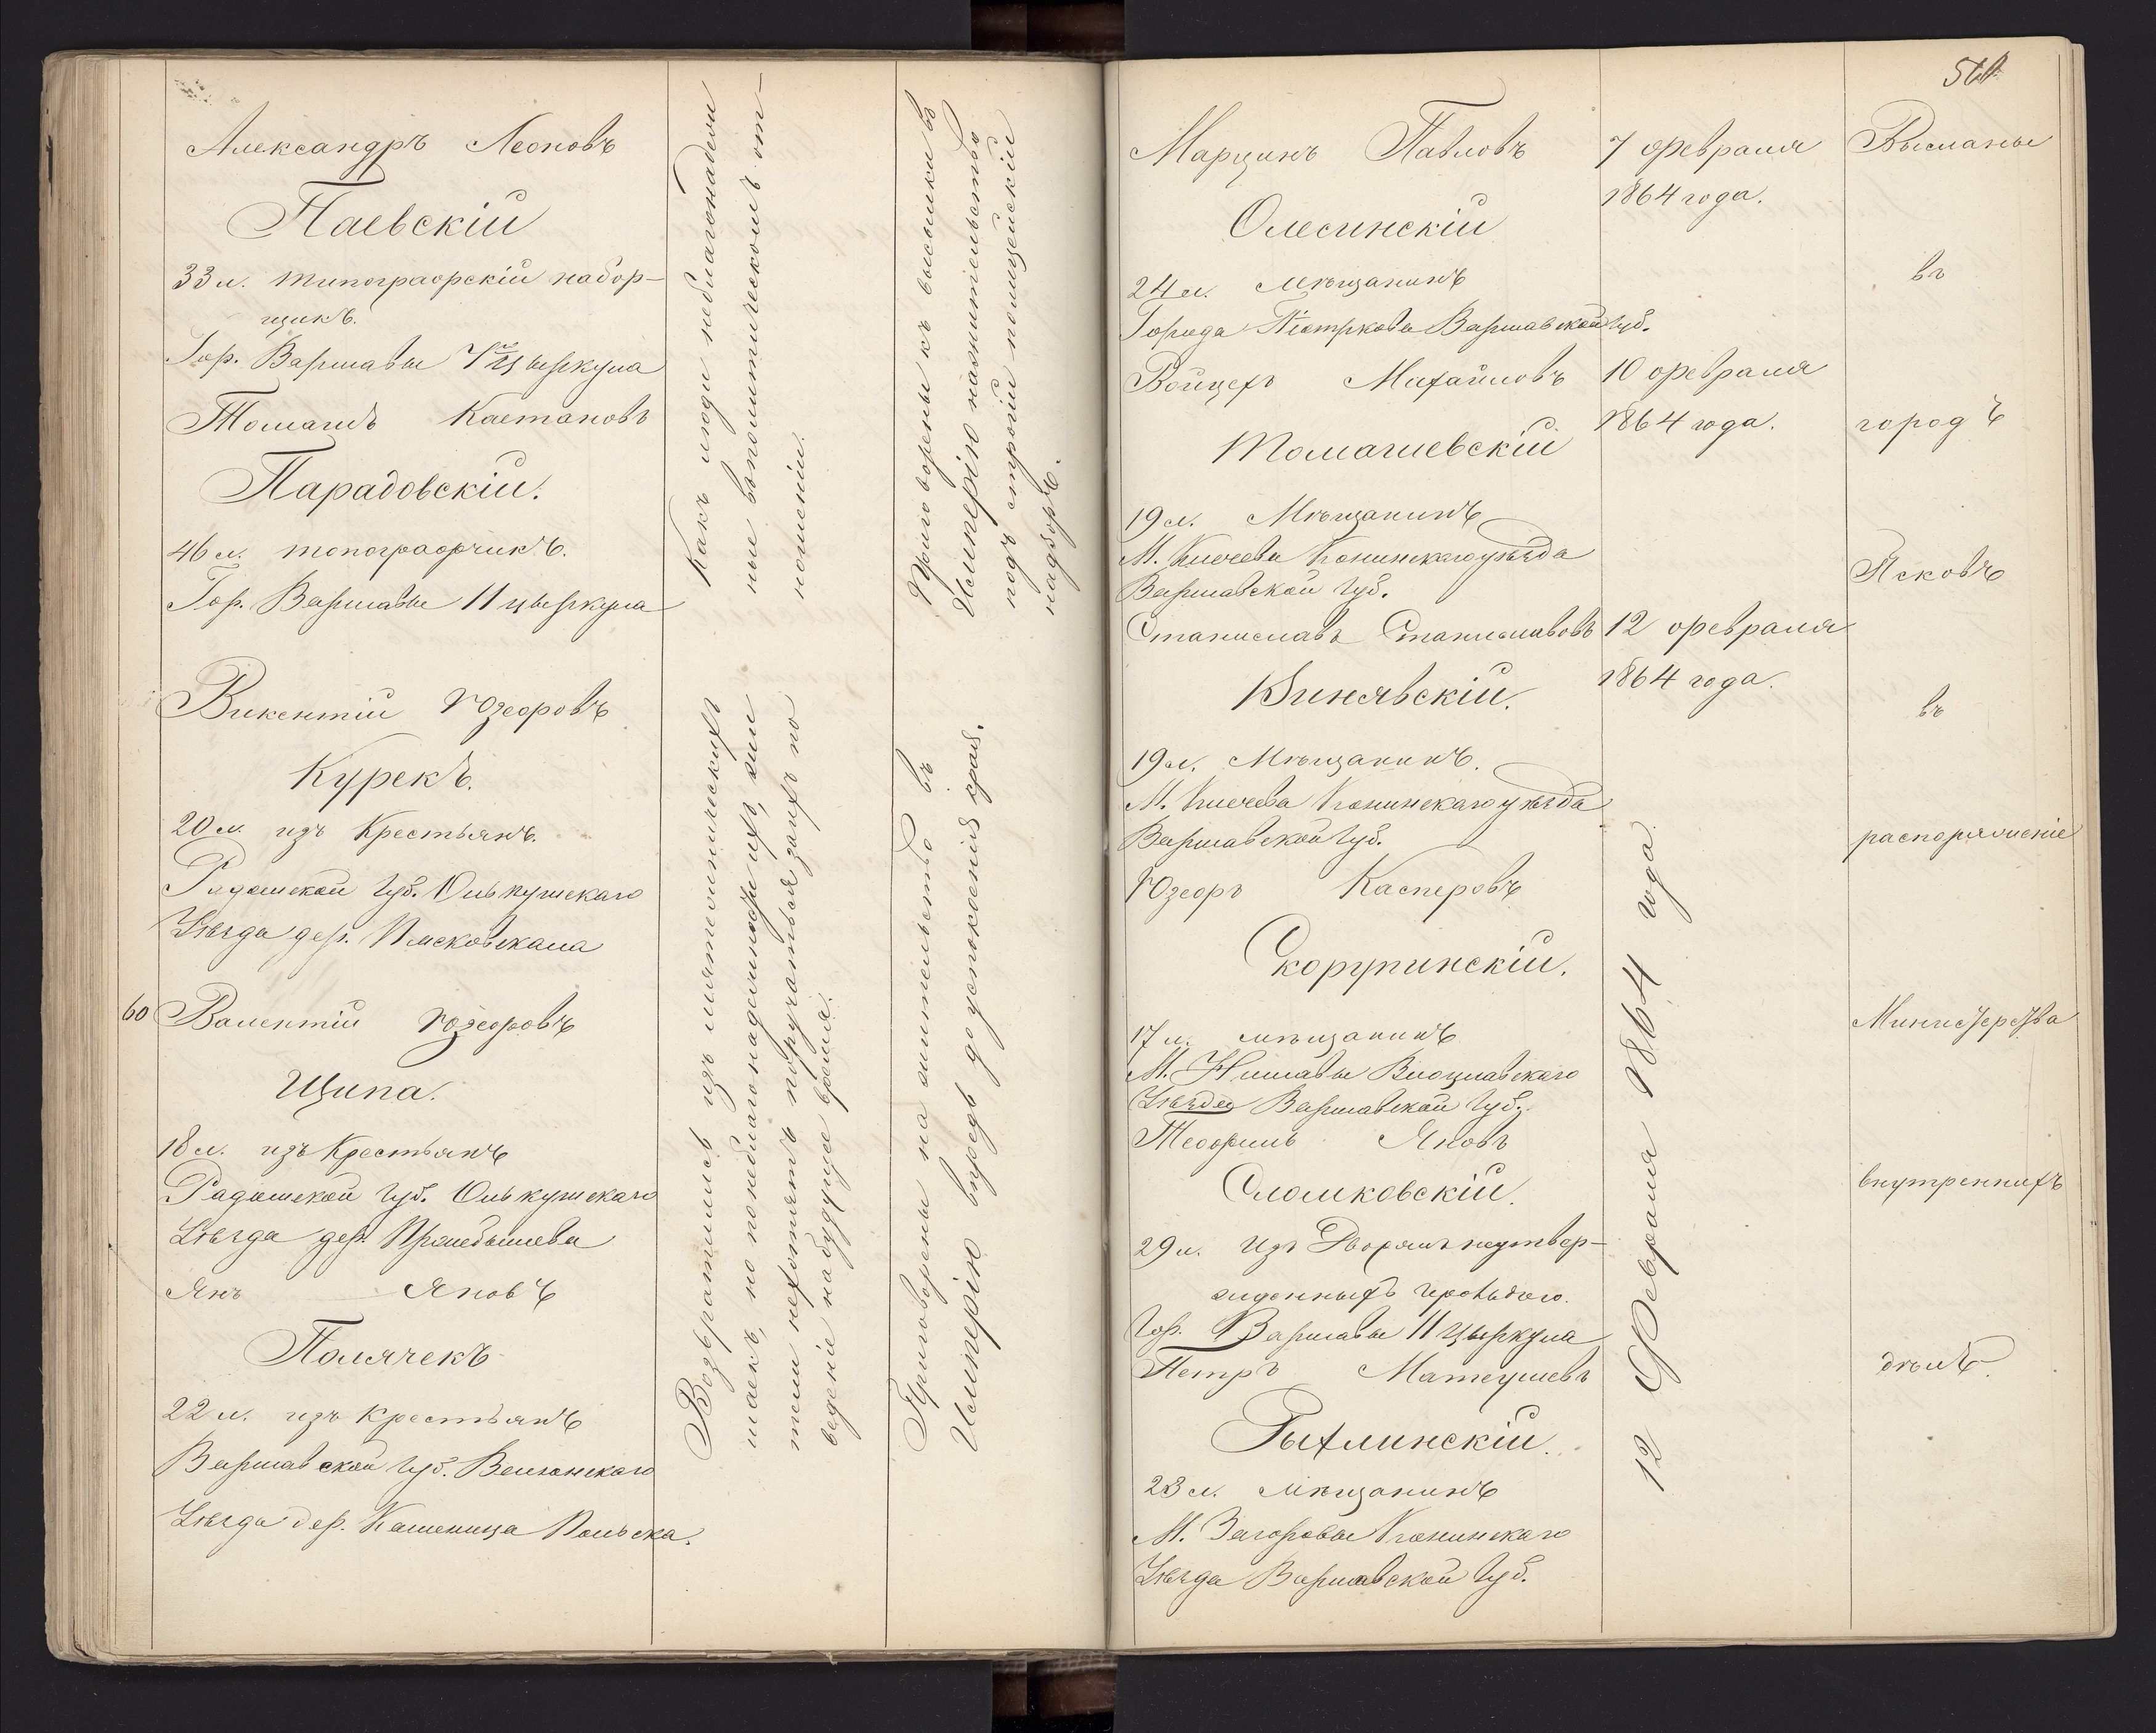 Александръ Леоновъ
Паевскій
33 л. типографскій набор-
щикъ.
Гор. Варшавы 7го цыркула
Томашъ Каетановъ
Парадовскій.
46 л. топографчикъ.
Гор. Варшавы 11 цыркула
Викентій Юзефовъ
Курекъ.
20 л. изъ Крестьянъ.
Радомской Губ. Олькушскаго
Уѣзда дер. Пясковскала
60 Валентій Юзефовъ
Щипа.
18 л. изъ Крестьянъ
Радомской Губ. Олькушскаго
Уѣзда дер.
Янъ Яновъ
Полячекъ
22 л. изъ крестьянъ
Варшавской Губ. Велюнскаго
Уѣзда дер. Каменица Польска.
Какъ люди неблагонадежи
ные въ политическомъ от-
ношеніи.
Возвратились изъ мятежническихъ
шаекъ, но по неблагонадежности ихъ, жи
тели нехотятъ поручаться за нихъ по
веденіе на будущее время.
Приговорены къ высылки въ
Имперію на жительство
подъ строгій полицейскій
надзоръ.
Приговорены на жительство въ
Имперію впредь до успокоенія края.
561
Марцинъ Павловъ
Олесинскій
24 л. мѣщанинъ
Города Піотркова Варшавской Губ.
Войцехъ Михайловъ
Томашевскій
19 л. Мѣщанинъ
М. Клечева Конинскаго уѣзда
Варшавской Губ.
Станиславъ Станиславовъ
Винявскій.
19 л. Мѣщанинъ.
М. Клечева Конинскаго уѣзда
Варшавской Губ.
Юзефъ Касперовъ
Скорупинскій.
17 л. мѣщанинъ
М. Нишавы Влоцлавскаго
Уѣзда Варшавской Губ.
Теофиль Яновъ
Сломковскій.
29 л. Изъ Дворянъ неутвер-
жденныхъ
Гор. Варшавы 11 цыркула
Петръ Матеушевъ
Рыхлинскій.
23 л. мѣщанинъ
М. Загорова Конинскаго
Уѣзда Варшавской Губ.
7 февраля
1864 года.
10 февраля
1864 года.
12 февраля
1864 года.
12 Февраля 1864 года
Высланы
въ
городъ
Псковъ
въ
распоряженіе
Министерства
внутреннихъ
дѣлъ.